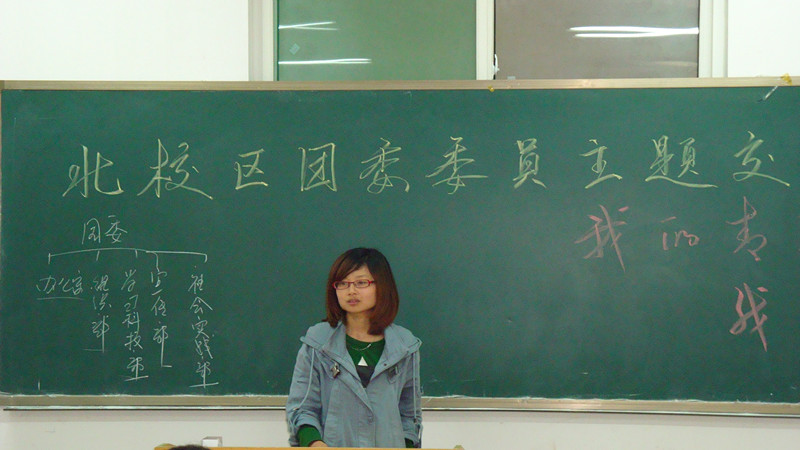 北校区团委委员主题交
我的青
我
团委
办公室
组织部
学习科技部
宣传部
社会实践部